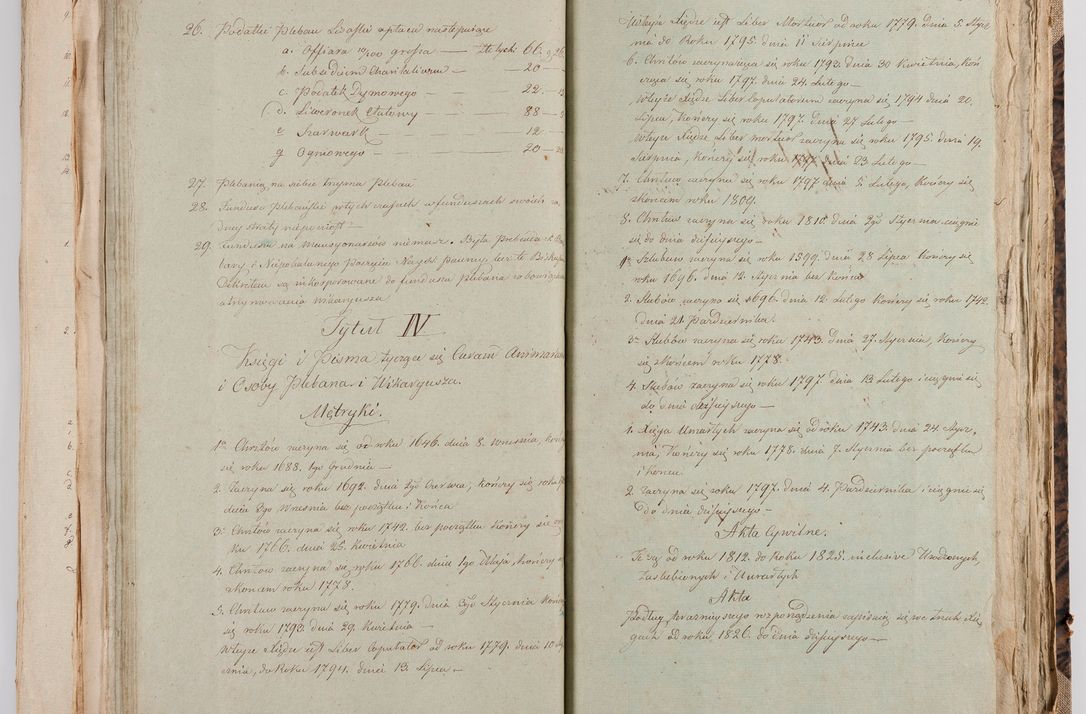 26. Podatki Pleban Lisoſski opłaca następujące
a. Offiara 10/100 grosza — Złotych 66. g 26
b. Subsidium Charitativum — — 20 —
c. Podatek Dymowego — — — 22.
d. Liweronek Etatowy — — — 88 —
e Szarwark — — — 12 —
g Ogniowego — — — 20 —
27. Plebanią na siebie trzyma Pleban
28. Fundusz Plebański w tych czasach w funduszach swoich
dney straty nieponiosł —
29. Funduszu na Mansyonarzów niemasz. Była Prebenda S. Bar
bary i Niepokalanego Poczęcia Nayś: Panny, lecz te
są inkorporowane do funduszu Plebana z obowiązkiem
utrzymowania Wikaryusza
Tytuł IV
Księgi i Pisma tyczące się Curam Animarum
i Osoby Plebana i Wikaryusza.
Metryki.
1o Chrztów zaczyna się od roku 1646. dnia 8. Września, kończy
się roku 1688. 1go Grudnia —
2. Zaczyna się roku 1692. dnia 2go Czerwca, kończy się roku
dnia 2go Września bez początku i Końca
3o Chrztów zaczyna się roku 1742. bez początku Kończy się ro
ku 1766. dnia 25. Kwietnia
4. Chrztów zaczyna się roku 1766. dnia 1go Maja, kończy się
z końcem roku 1778.
5. Chrztów zaczyna się roku 1779. dnia 3go Stycznia Kończy
się roku 1793. dnia 29. Kwietnia —
W teyże Xiędze iest Liber Copulator od roku 1779. dnia 10
cznia, do Roku 1794. dnia 13. Lipca —
W teyże Xiędze iest Liber Mortuor od roku 1779. dnia 5. Stycz
nia do Roku 1795. dnia 11 Sierpnia
6. Chrztów zaczynaiąca się roku 1793. dnia 30 Kwietnia, koń
cząca się roku 1797. dnia 24. Lutego —
W teyże Xiędze Liber Copulatorum zaczyna się 1794 dnia 20.
Lipca, Kończy się roku 1797. dnia 27 Lutego —
W teyże Xiędze Liber mortuor zaczyna się roku 1795. dnia 19.
Sierpnia, Kończy się roku 1797 dnia 23 Lutego —
7. Chrztów zaczyna się roku 1797 dnia 5 Lutego, Kończy się
z końcem roku 1809.
8. Chrztów zaczyna się roku 1810. dnia 2go Stycznia ciągnie
się do dnia dzisieyszego —
1o Szlubów zaczyna się roku 1599. dnia 28 Lipca Kończy się
roku 1696. dnia 12. Stycznia bez Końca
2. Slubów zaczyna się 1696. dnia 12. Lutego Kończy się roku 1742.
dnia 21. Października.
3o Slubów zaczyna się roku 1743. dnia 27. Stycznia, Kończy
się z końcem roku 1778.
4. Slubów zaczyna się roku 1797. dnia 13 Lutego i ciągnie się
do dnia dzisieyszego —
1. Xięga Umarłych zaczyna się od roku 1743. dnia 24. Stycz
nia, Kończy się roku 1778. dnia 7. Stycznia bez początku
i Końca
2. Zaczyna się roku 1797. dnia 4. Października i ciągnie się
do dnia dzisieyszego —
Akta Cywilne.
Te są od roku 1812. do Roku 1825. inclusive Urodzonych,
Zaslubionych i Umarłych
Akta
Podług terażnieyszego rozporządzenia zapisuią się we trzech Xię
gach od roku 1826. do dnia dzisieyszego —